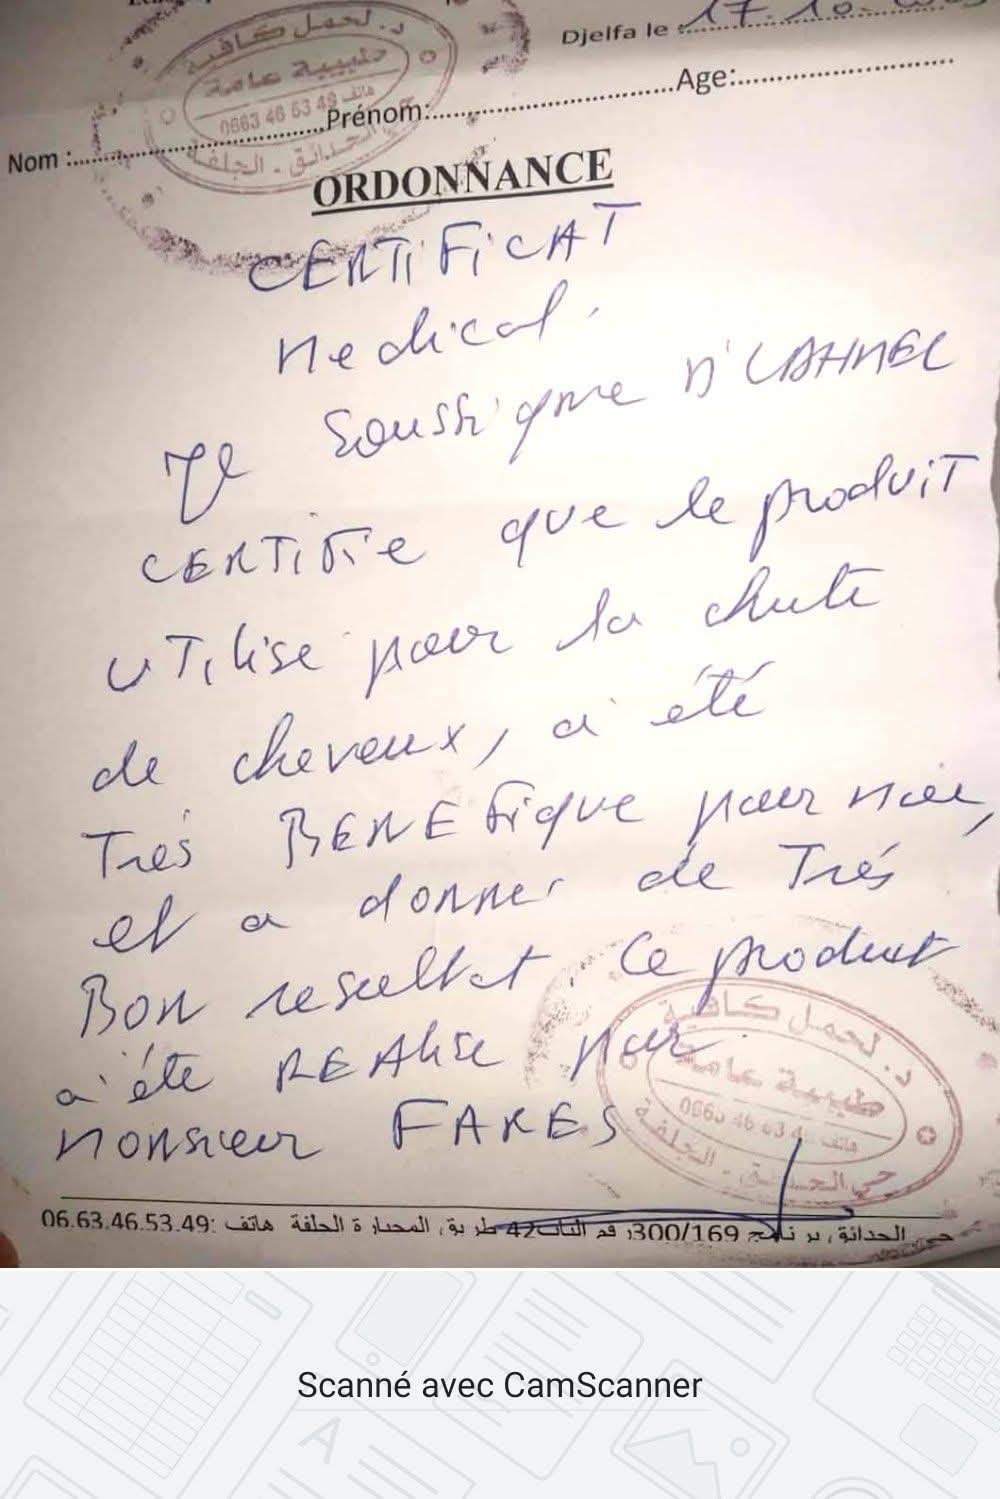 Djelfa le : 17.10.
Nom : Prénom: Age:
د. لحمل كافية
طبيبة عامة
هاتف 0663 46 53 49
حي الحدائق - الجلفة
ORDONNANCE
CERTIFICAT
Medical.
Je soussigne D' LAHMEL
CERTIFIE que le produit
utilise pour la chute
de cheveux, a été
Très BENEFique pour moi,
et a donner de Très
Bon resultat. Ce produit
a été REAlise par
Monsieur FARES
د. لحمل كافية
طبيبة عامة
حي الحدائق - الجلفة
حي الحدائق، برنامج 300/169 42 طريق 06.63.46.53.49: هاتف
Scanné avec CamScanner